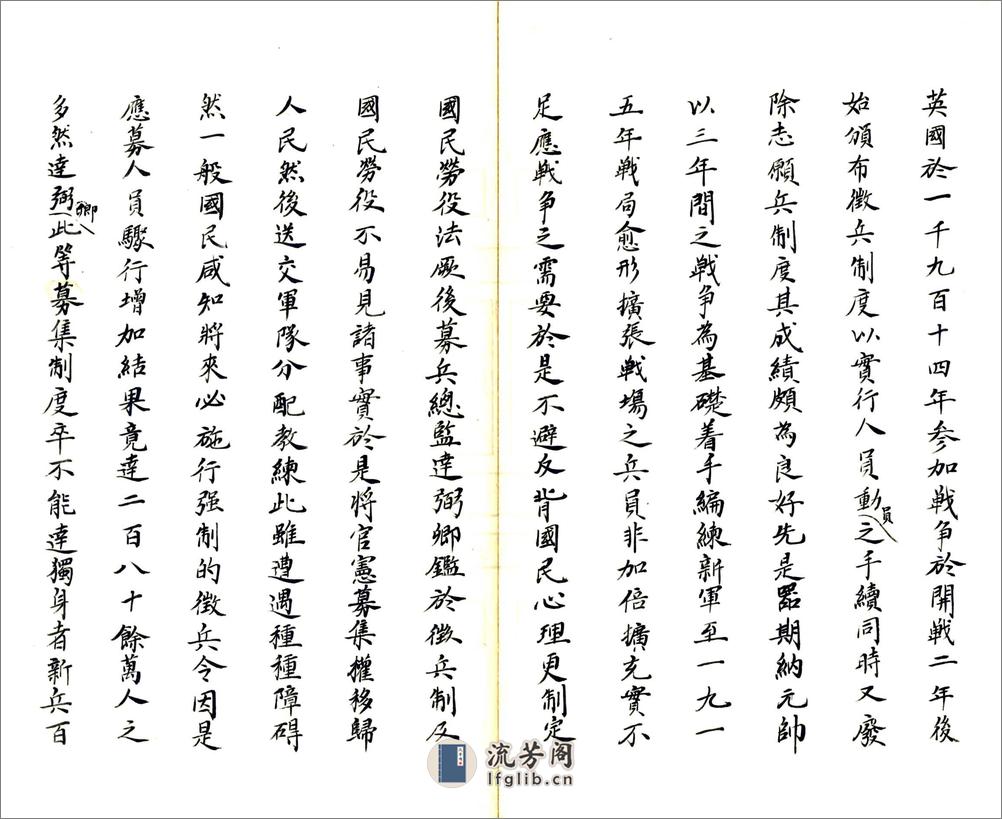 英國於一千九百十四年参加戰争於開戰二年後
始頒布徵兵制度以實行人員動員之手續同時又廢
除志願兵制度其成績頗為良好先是器期納元帥
以三年間之戰争為基礎着手編練新軍至一九一
五年戰局愈形擴張戰場之兵員非加倍擴充實不
足應戰争之需要於是不避反背國民心理更制定
國民勞役法厥後募兵總監達弼卿鑑於徵兵制及
國民勞役不易見諸事實於是將官憲募集權移歸
人民然後送交軍隊分配教練此雖遭遇種種障碍
然一般國民咸知將來必施行强制的徵兵令因是
應募人員驟行增加結果竟達二百八十餘萬人之
多然達弼卿此等募集制度卒不能達獨身者新兵百
流芳阁
lfglib.cn